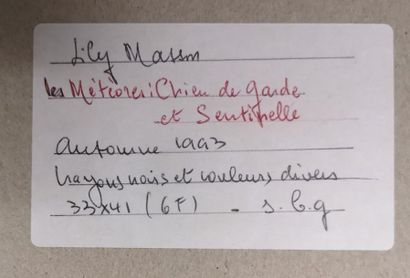 Lily Masson
les Météores: Chien de garde
et Sentinelle
Automne 1993
Crayons noirs et couleurs divers
33x41 (6F) - s.b.g